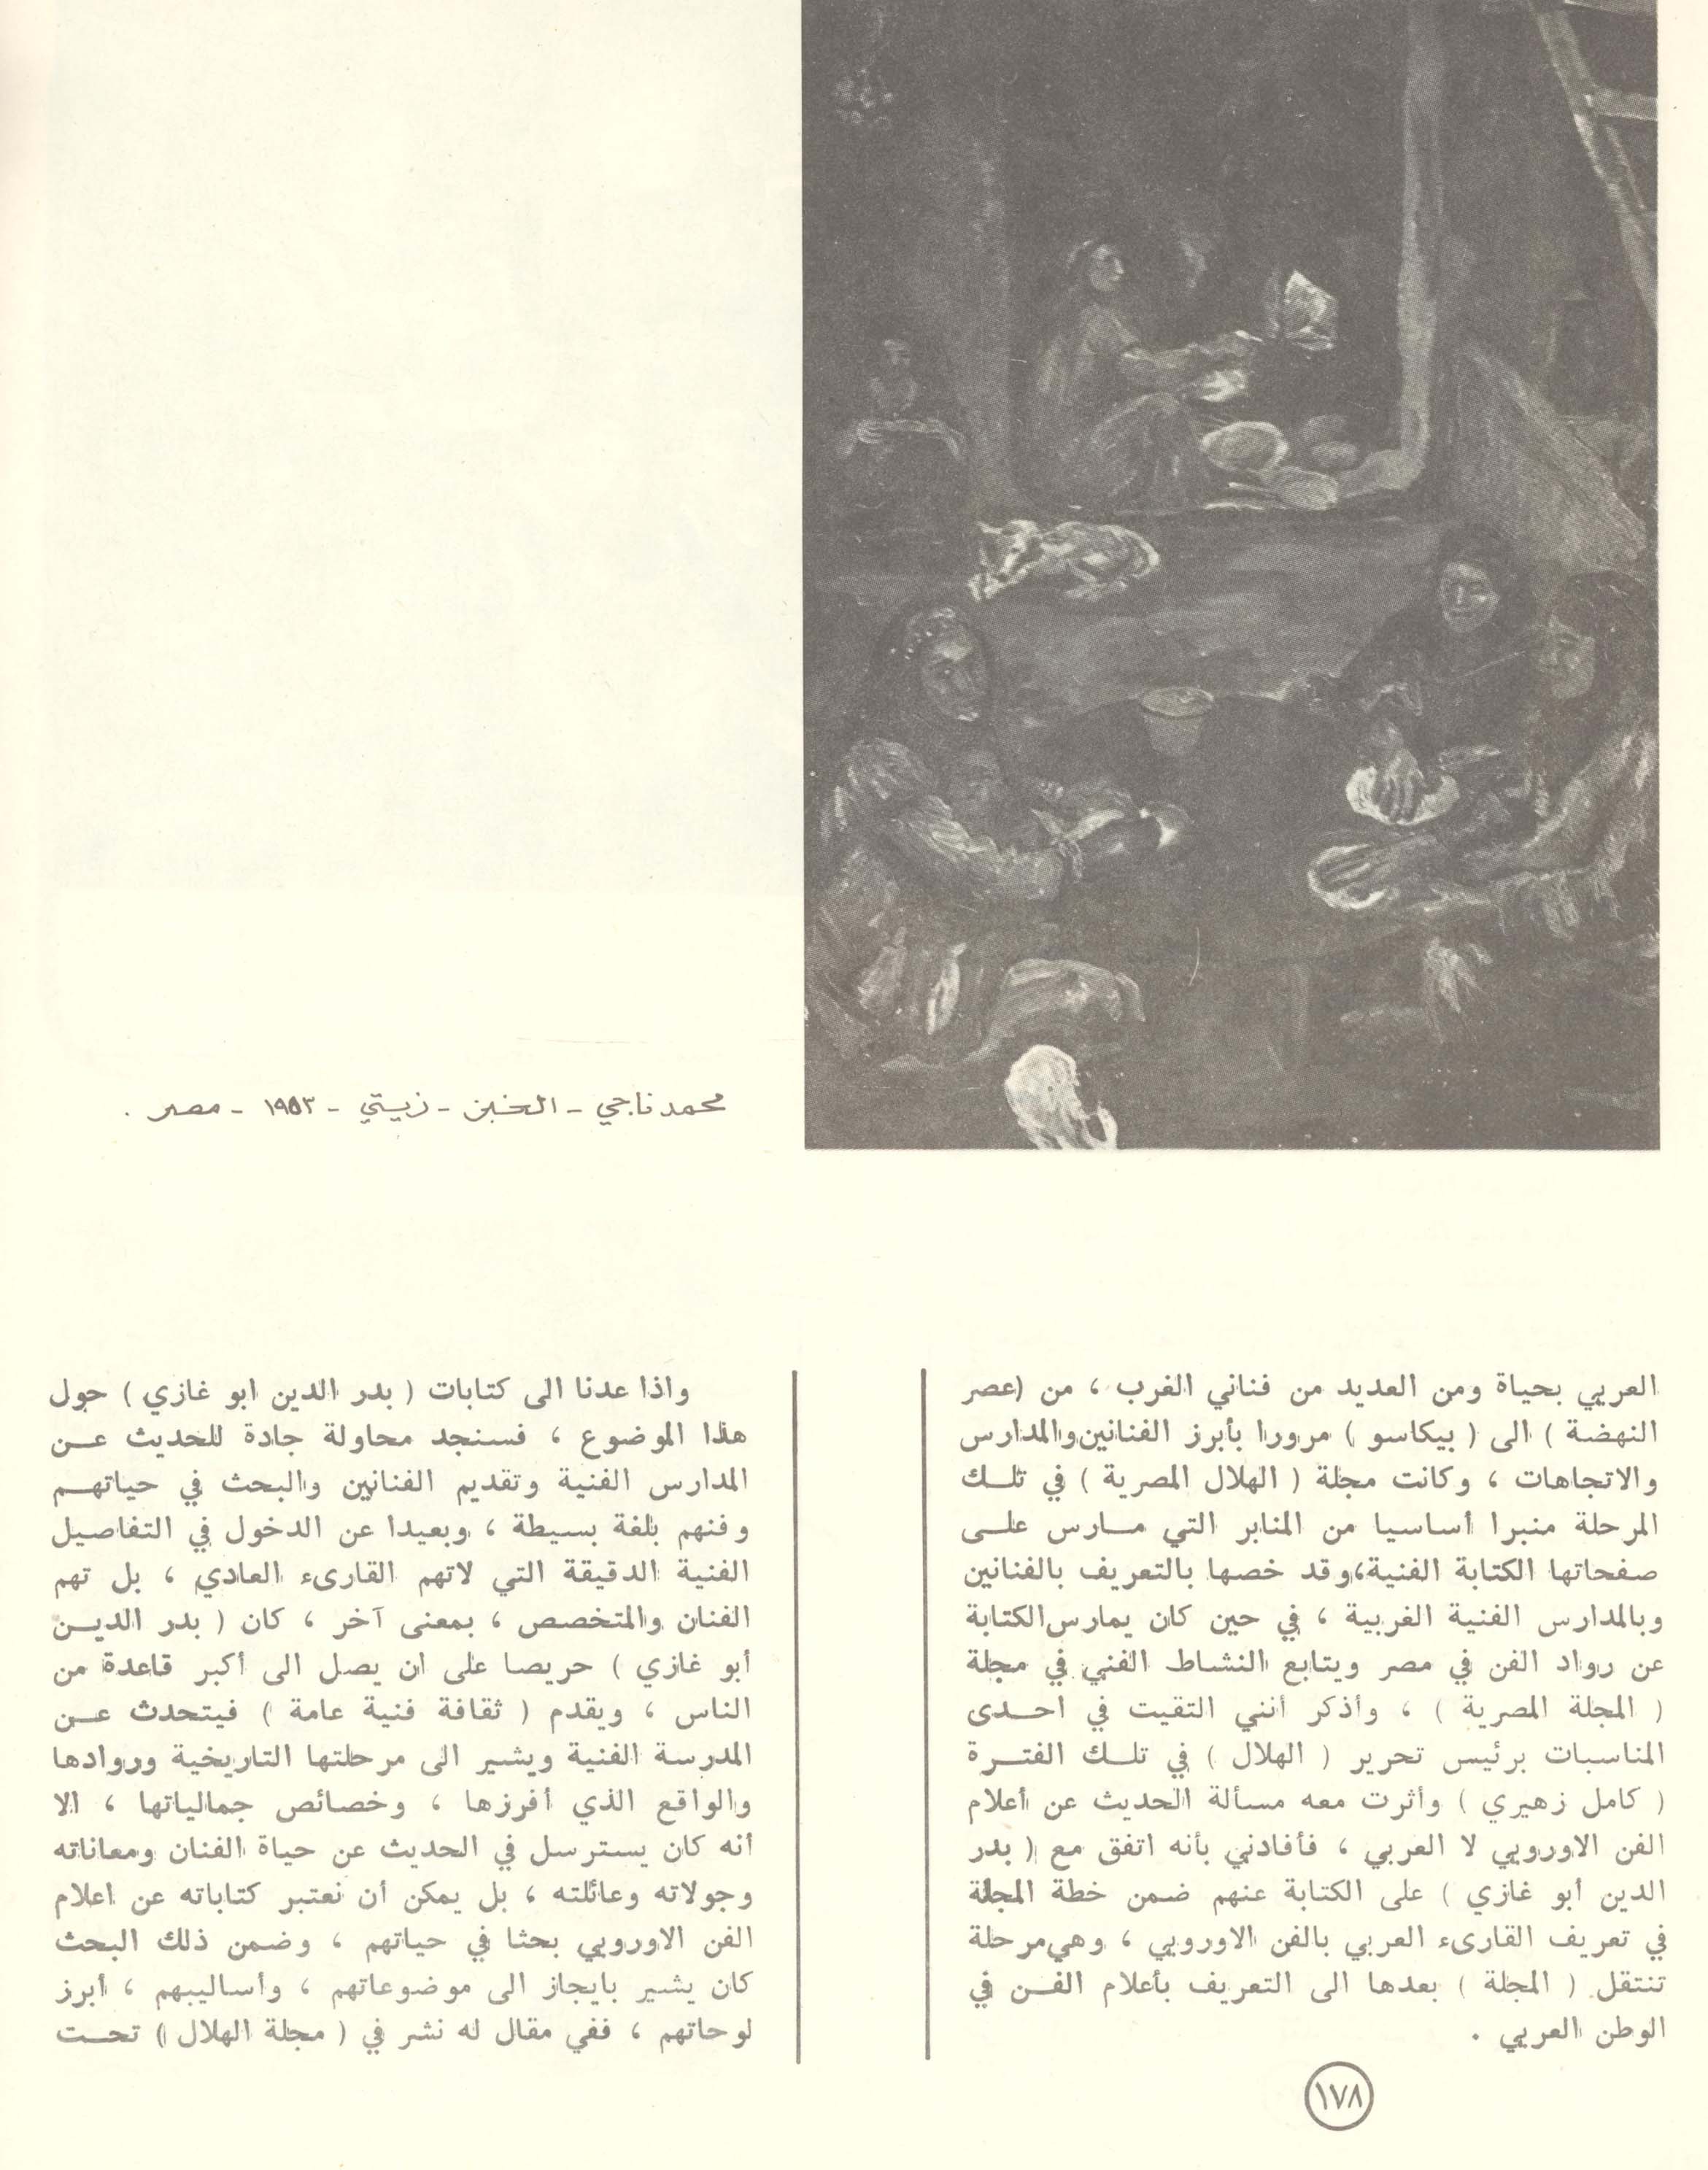 محمد ناجي - الخبز - زيتي - ١٩٥٣ - مصر .
العربي بحياة ومن العديد من فناني الغرب ، من (عصر
النهضة ) الى ( بيكاسو ) مرورا بأبرز الفنانين والمدارس
والاتجاهات ، وكانت مجلة ( الهلال المصرية ) في تلـك
المرحلة منبرا أساسيا من المنابر التي مـارس علـى
صفحاتها الكتابة الفنية،وقد خصها بالتعريف بالفنانين
وبالمدارس الفنية الغربية ، في حين كان يمارس الكتابة
عن رواد الفن في مصر ويتابع النشاط الفني في مجلة
( المجلة المصرية ) ، وأذكر أنني التقيت في احـدى
المناسبات برئيس تحرير ( الهلال ) في تلـك الفتـرة
( كامل زهيري ) وأثرت معه مسألة الحديث عن أعلام
الفن الاوروبي لا العربي ، فأفادني بأنه اتفق مع ( بدر
الدين أبو غازي ) على الكتابة عنهم ضمن خطة المجلة
في تعريف القارىء العربي بالفن الاوروبي ، وهي مرحلة
تنتقل ( المجلة ) بعدها الى التعريف بأعلام الفـن في
الوطن العربي .
واذا عدنا الى كتابات ( بدر الدين ابو غازي ) حول
هذا الموضوع ، فسنجد محاولة جادة للحديث عـن
المدارس الفنية وتقديم الفنانين والبحث في حياتهـم
وفنهم بلغة بسيطة ، وبعيدا عن الدخول في التفاصيل
الفنية الدقيقة التي لاتهم القارىء العادي ، بل تهم
الفنان والمتخصص ، بمعنى آخر ، كان ( بدر الديـن
أبو غازي ) حريصا على ان يصل الى أكبر قاعدة من
الناس ، ويقدم ( ثقافة فنية عامة ) فيتحدث عـن
المدرسة الفنية ويشير الى مرحلتها التاريخية وروادها
والواقع الذي أفرزها ، وخصائص جمالياتها ، الا
أنه كان يسترسل في الحديث عن حياة الفنان ومعاناته
وجولاته وعائلته ، بل يمكن أن نعتبر كتاباته عن اعلام
الفن الاوروبي بحثا في حياتهم ، وضمن ذلك البحث
كان يشير بايجاز الى موضوعاتهم ، وأساليبهم ، أبرز
لوحاتهم ، ففي مقال له نشر في ( مجلة الهلال ) تحـت
١٧٨